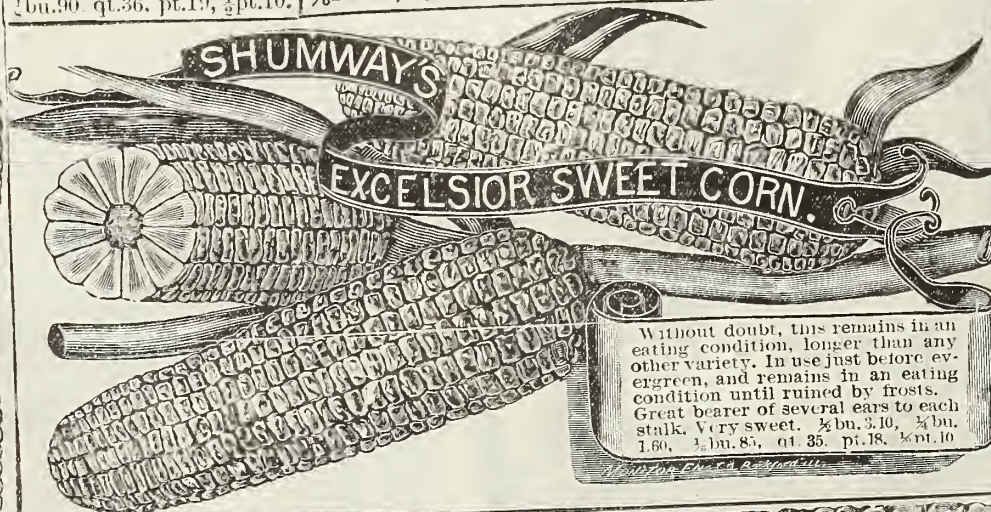 bu.90. qt.36. pt.19, ½pt.10.
SHUMWAY'S
EXCELSIOR SWEET CORN.
Without doubt, this remains in an
eating condition, longer than any
other variety. In use just before ev-
ergreen, and remains in an eating
condition until ruined by frosts.
Great bearer of several ears to each
stalk. Very sweet. ½bu.3.10, ¼bu.
1.60, ⅛bu.85, qt.35. pt.18. ½pt.10
MONITOR ENG. CO.